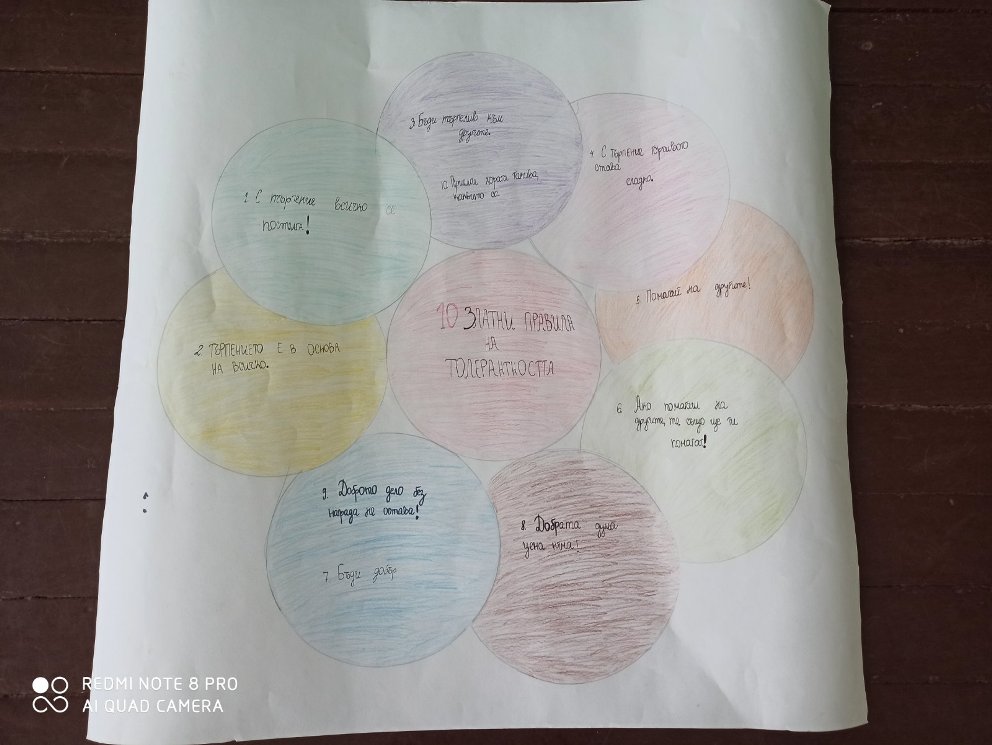 3 Бъди търпелив към
другите.
10. Приемай хората такива,
каквито са
4. С търпение горчивото
става
сладко.
1. С търпение всичко се
постига!
5. Помагай на другите!
10 ЗЛАТНИ ПРАВИЛА
НА
ТОЛЕРАНТНОСТТА
2. ТЪРПЕНИЕТО Е В ОСНОВА
НА ВСИЧКО.
6. Ако помагаш на
другите, те също ще ти
помагат!
9. Доброто дело без
награда не остава!
7. Бъди добър
8. Добрата дума
цена няма!
REDMI NOTE 8 PRO
AI QUAD CAMERA